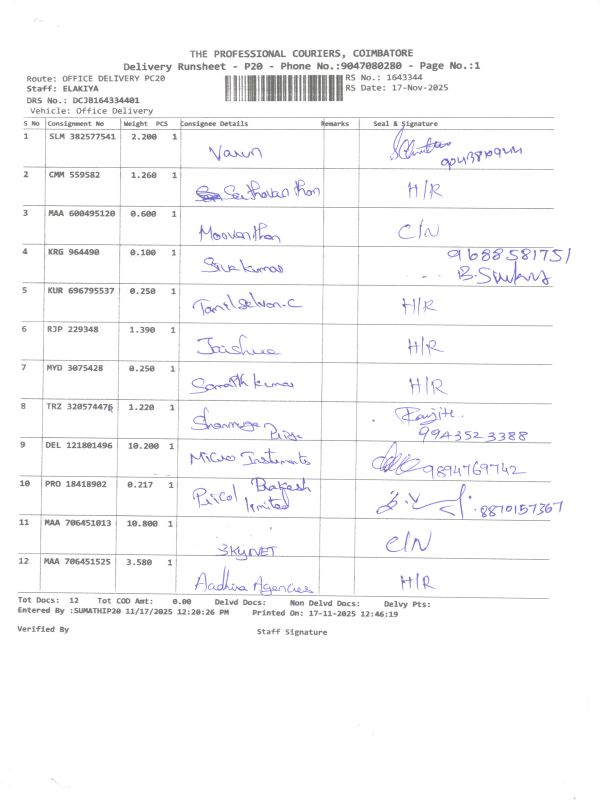 THE PROFESSIONAL COURIERS, COIMBATORE
Delivery Runsheet - P20 - Phone No.:9047080280 - Page No.:1
Route: OFFICE DELIVERY PC20 RS No.: 1643344
Staff: ELAKIYA RS Date: 17-Nov-2025
DRS No.: DCJB164334401
Vehicle: Office Delivery
S No Consignment No Weight PCS Consignee Details Remarks Seal & Signature
1 SLM 382577541 2.200 1 Varun
2 CMM 559582 1.260 1 H/R
3 MAA 600495120 0.600 1 Moovanthan C/N
4 KRG 964490 0.100 1 Sivakumar 9688581751
5 KUR 696795537 0.250 1 Tamilselvan.C H/R
6 RJP 229348 1.390 1 Jaishree H/R
7 MYD 3075428 0.250 1 Sampath kumar H/R
8 TRZ 320574476 1.220 1 Shanmuga Priya Ranjith. 9943523388
9 DEL 121801496 10.200 1 Micro Instruments 9894769742
10 PRO 18418902 0.217 1 Pricol Limited Prakash 8870157367
11 MAA 706451013 10.800 1 SKYNET C/N
12 MAA 706451525 3.580 1 Aadhira Agencies H/R
Tot Docs: 12 Tot COD Amt: 0.00 Delvd Docs: Non Delvd Docs: Delvy Pts:
Entered By :SUMATHIP20 11/17/2025 12:20:26 PM Printed On: 17-11-2025 12:46:19
Verified By Staff Signature